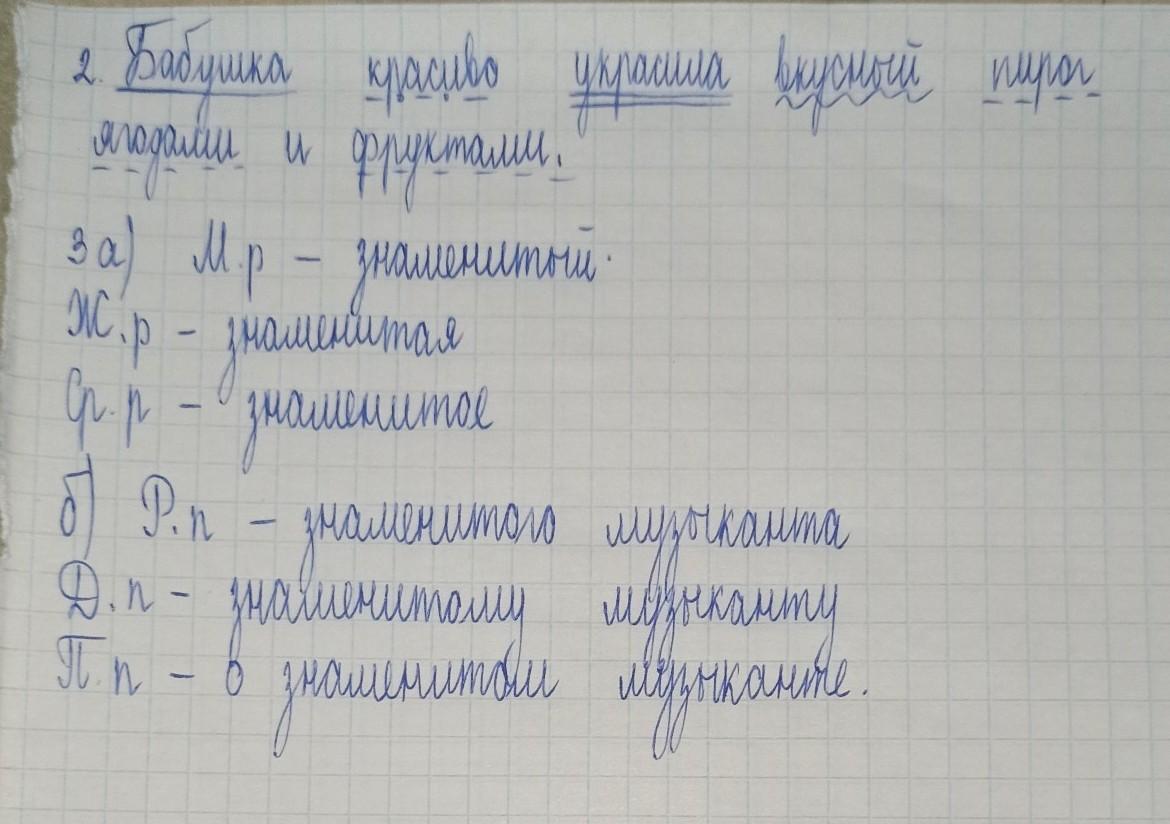 2. Бабушка красиво украсила вкусный пирог
ягодами и фруктами.
3 а) М.р – знаменитый.
Ж.р – знаменитая
Ср.р – знаменитое
б) Р.п – знаменитого музыканта
Д.п – знаменитому музыканту
П.п – о знаменитом музыканте.